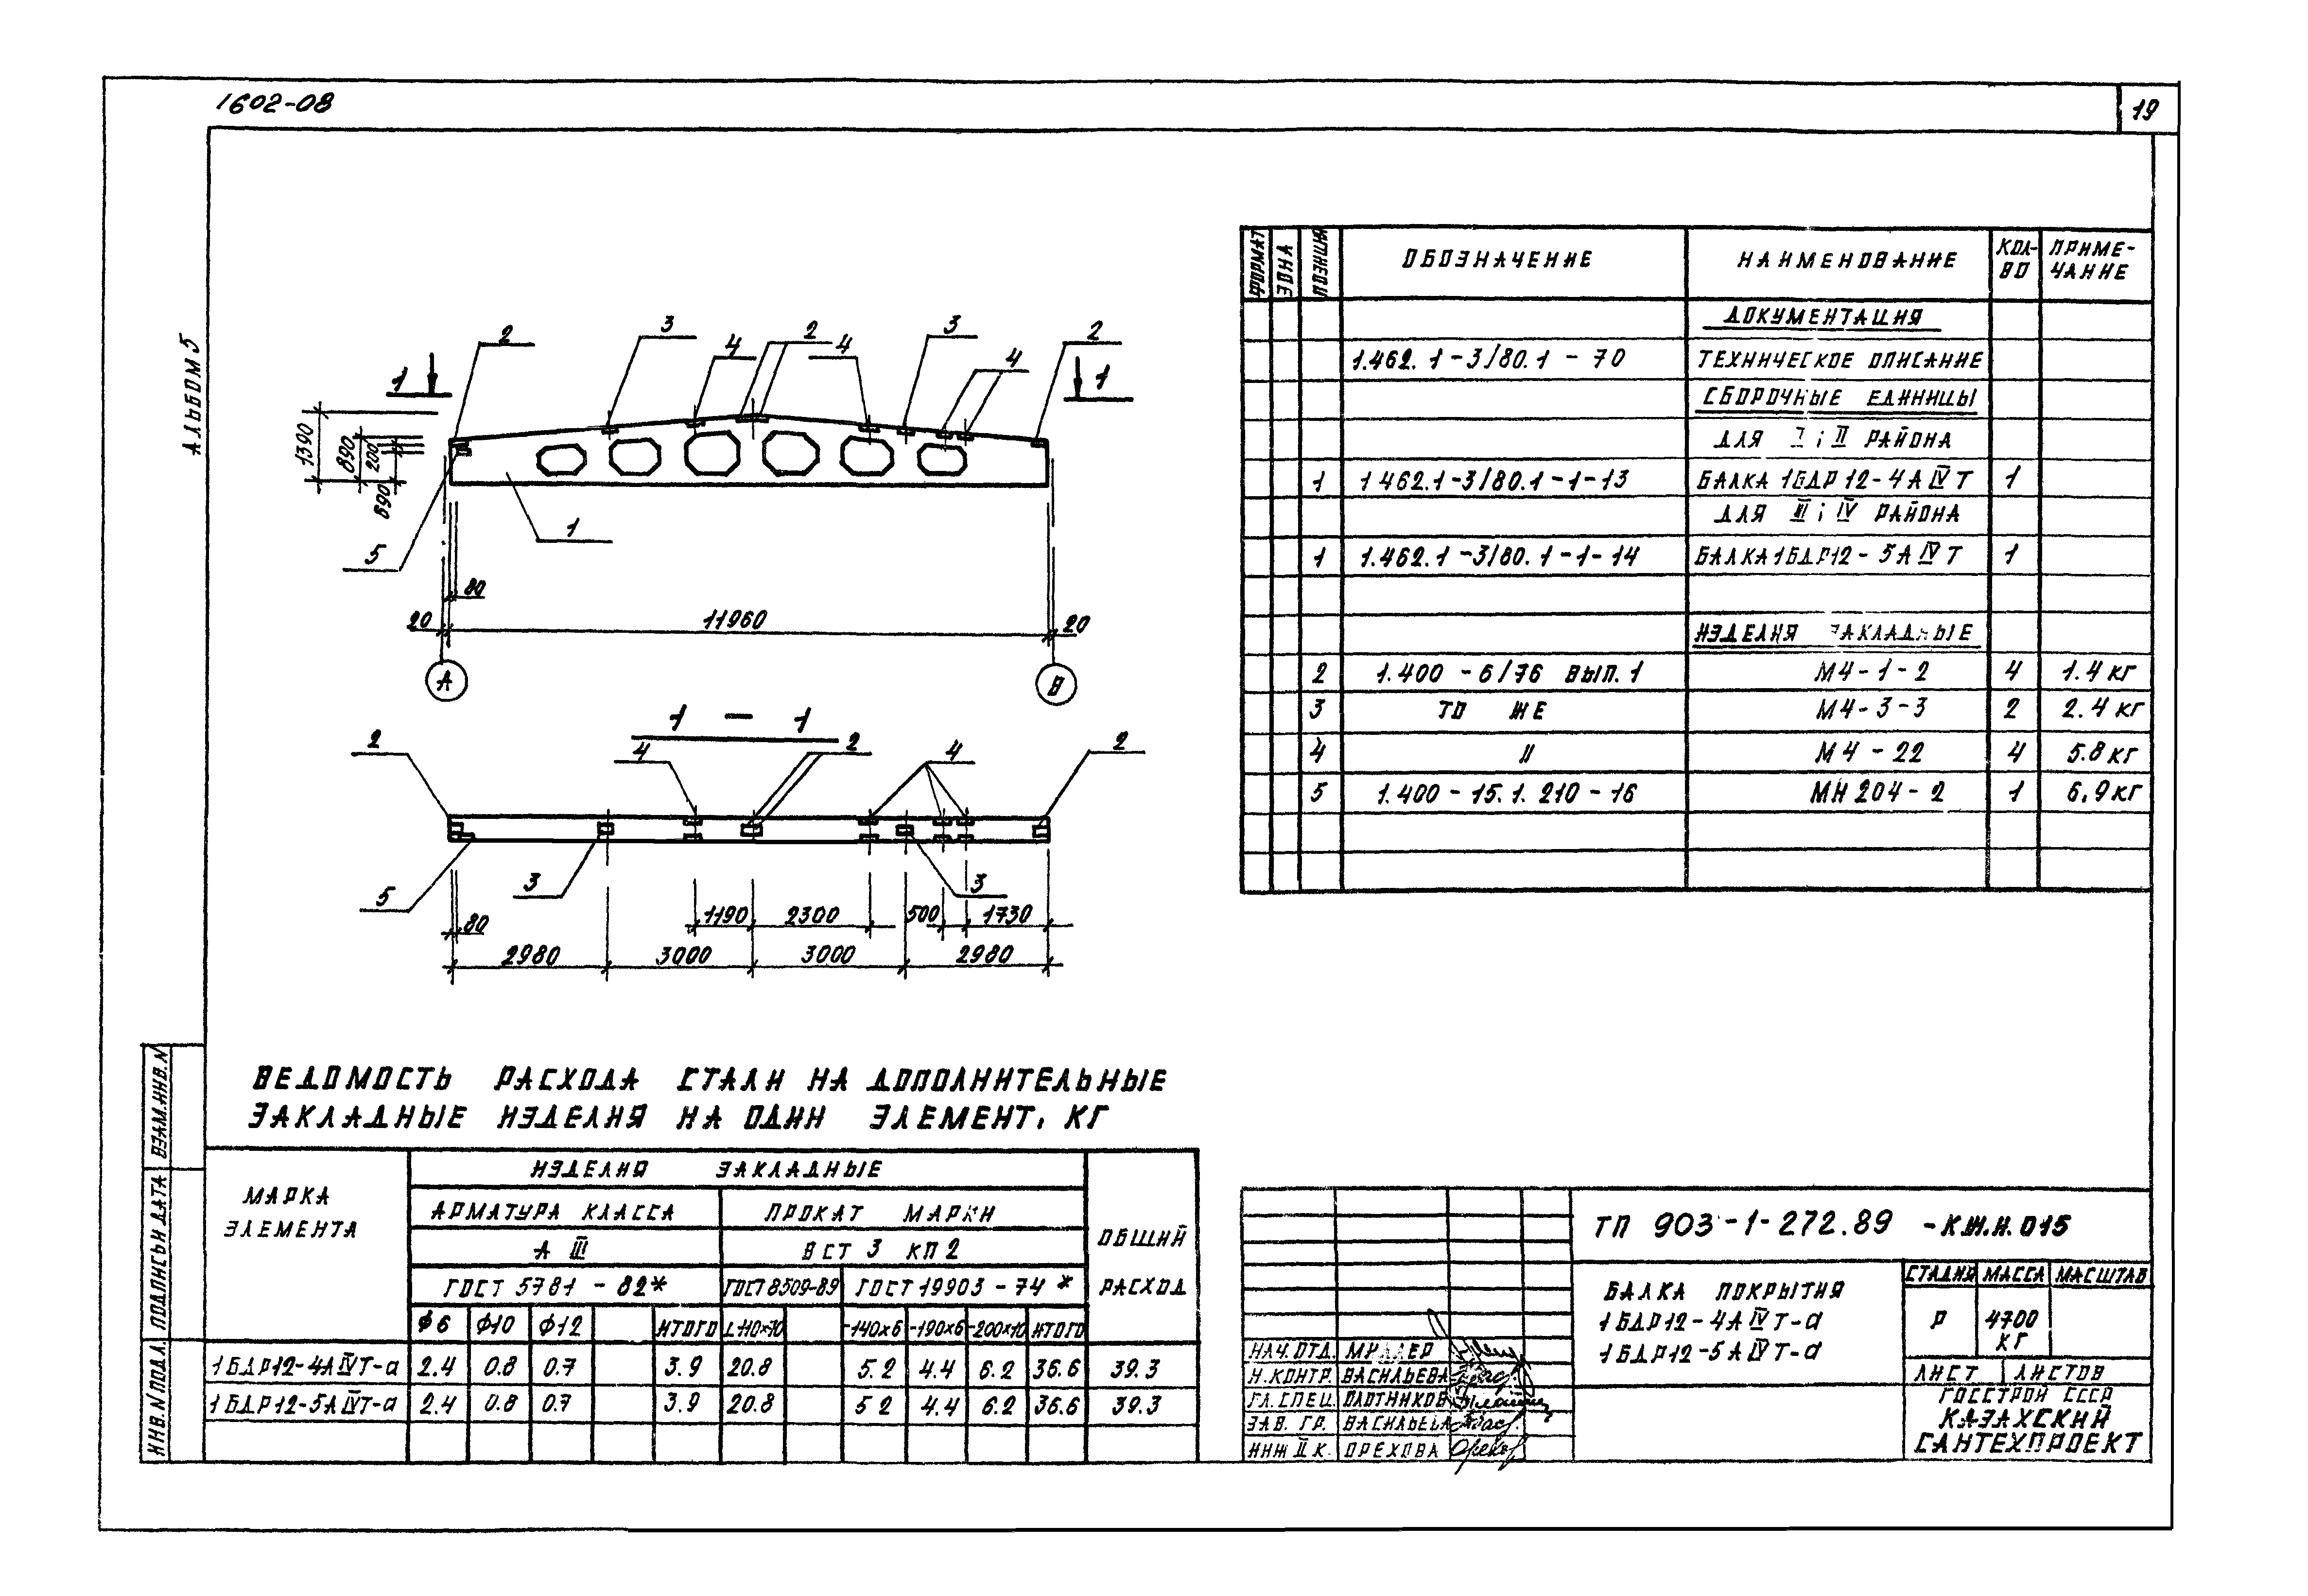 1602-08
19
АЛЬБОМ 5
2 3 4 2 4 3 4 2
1 1
1390 890 200 690
5 1
80
20 11960 20
А В
1 - 1
2 4 2 4 2
5 3 3
80 1190 2300 500 1730
2980 3000 3000 2980
ФОРМАТ ЗОНА ПОЗИЦИЯ ОБОЗНАЧЕНИЕ НАИМЕНОВАНИЕ КОЛ-ВО ПРИМЕ-ЧАНИЕ
ДОКУМЕНТАЦИЯ
1.462.1-3/80.1-70 ТЕХНИЧЕСКОЕ ОПИСАНИЕ
СБОРОЧНЫЕ ЕДИНИЦЫ
ДЛЯ I; II РАЙОНА
1 1 462.1-3/80.1-1-13 БАЛКА 1БДР 12-4АIVТ 1
ДЛЯ III; IV РАЙОНА
1 1.462.1-3/80.1-1-14 БАЛКА 1БДР12-5АIVТ 1
ИЗДЕЛИЯ ЗАКЛАДНЫЕ
2 1.400-6/76 ВЫП.1 М4-1-2 4 1.4 кг
3 ТО ЖЕ М4-3-3 2 2.4 кг
4 " М4-22 4 5.8 кг
5 1.400-15.1.210-16 МН 204-2 1 6,9 кг
ВЕДОМОСТЬ РАСХОДА СТАЛИ НА ДОПОЛНИТЕЛЬНЫЕ
ЗАКЛАДНЫЕ ИЗДЕЛИЯ НА ОДИН ЭЛЕМЕНТ, КГ
МАРКА ЭЛЕМЕНТА
ИЗДЕЛИЯ ЗАКЛАДНЫЕ
АРМАТУРА КЛАССА ПРОКАТ МАРКИ
А III ВСТ 3 КП2
ОБЩИЙ РАСХОД
ГОСТ 5781-82* ГОСТ 8509-89 ГОСТ 19903-74*
Ф6 Ф10 Ф12 ИТОГО L110х70 -140х6 -190х6 -200х10 ИТОГО
1БДР12-4АIVТ-а 2.4 0.8 0.7 3.9 20.8 5.2 4.4 6.2 36.6 39.3
1БДР12-5АIVТ-а 2.4 0.8 0.7 3.9 20.8 5 2 4.4 6.2 36.6 39.3
ВЗАМ.ИНВ.N
ПОДПИСЬ И ДАТА
ИНВ.N ПОДЛ.
ТП 903-1-272.89 -КЖ.И.015
БАЛКА ПОКРЫТИЯ
1БДР12-4АIVТ-а
1БДР12-5АIVТ-а
СТАДИЯ МАССА МАСШТАБ
Р 4700 КГ
ЛИСТ ЛИСТОВ
ГОССТРОЙ СССР
КАЗАХСКИЙ
САНТЕХПРОЕКТ
НАЧ.ОТД.
Н.КОНТР. ВАСИЛЬЕВА
ГЛ.СПЕЦ. ПЛОТНИКОВ
ЗАВ. ГР. ВАСИЛЬЕВА
ИНЖ II К. ОРЕХОВА